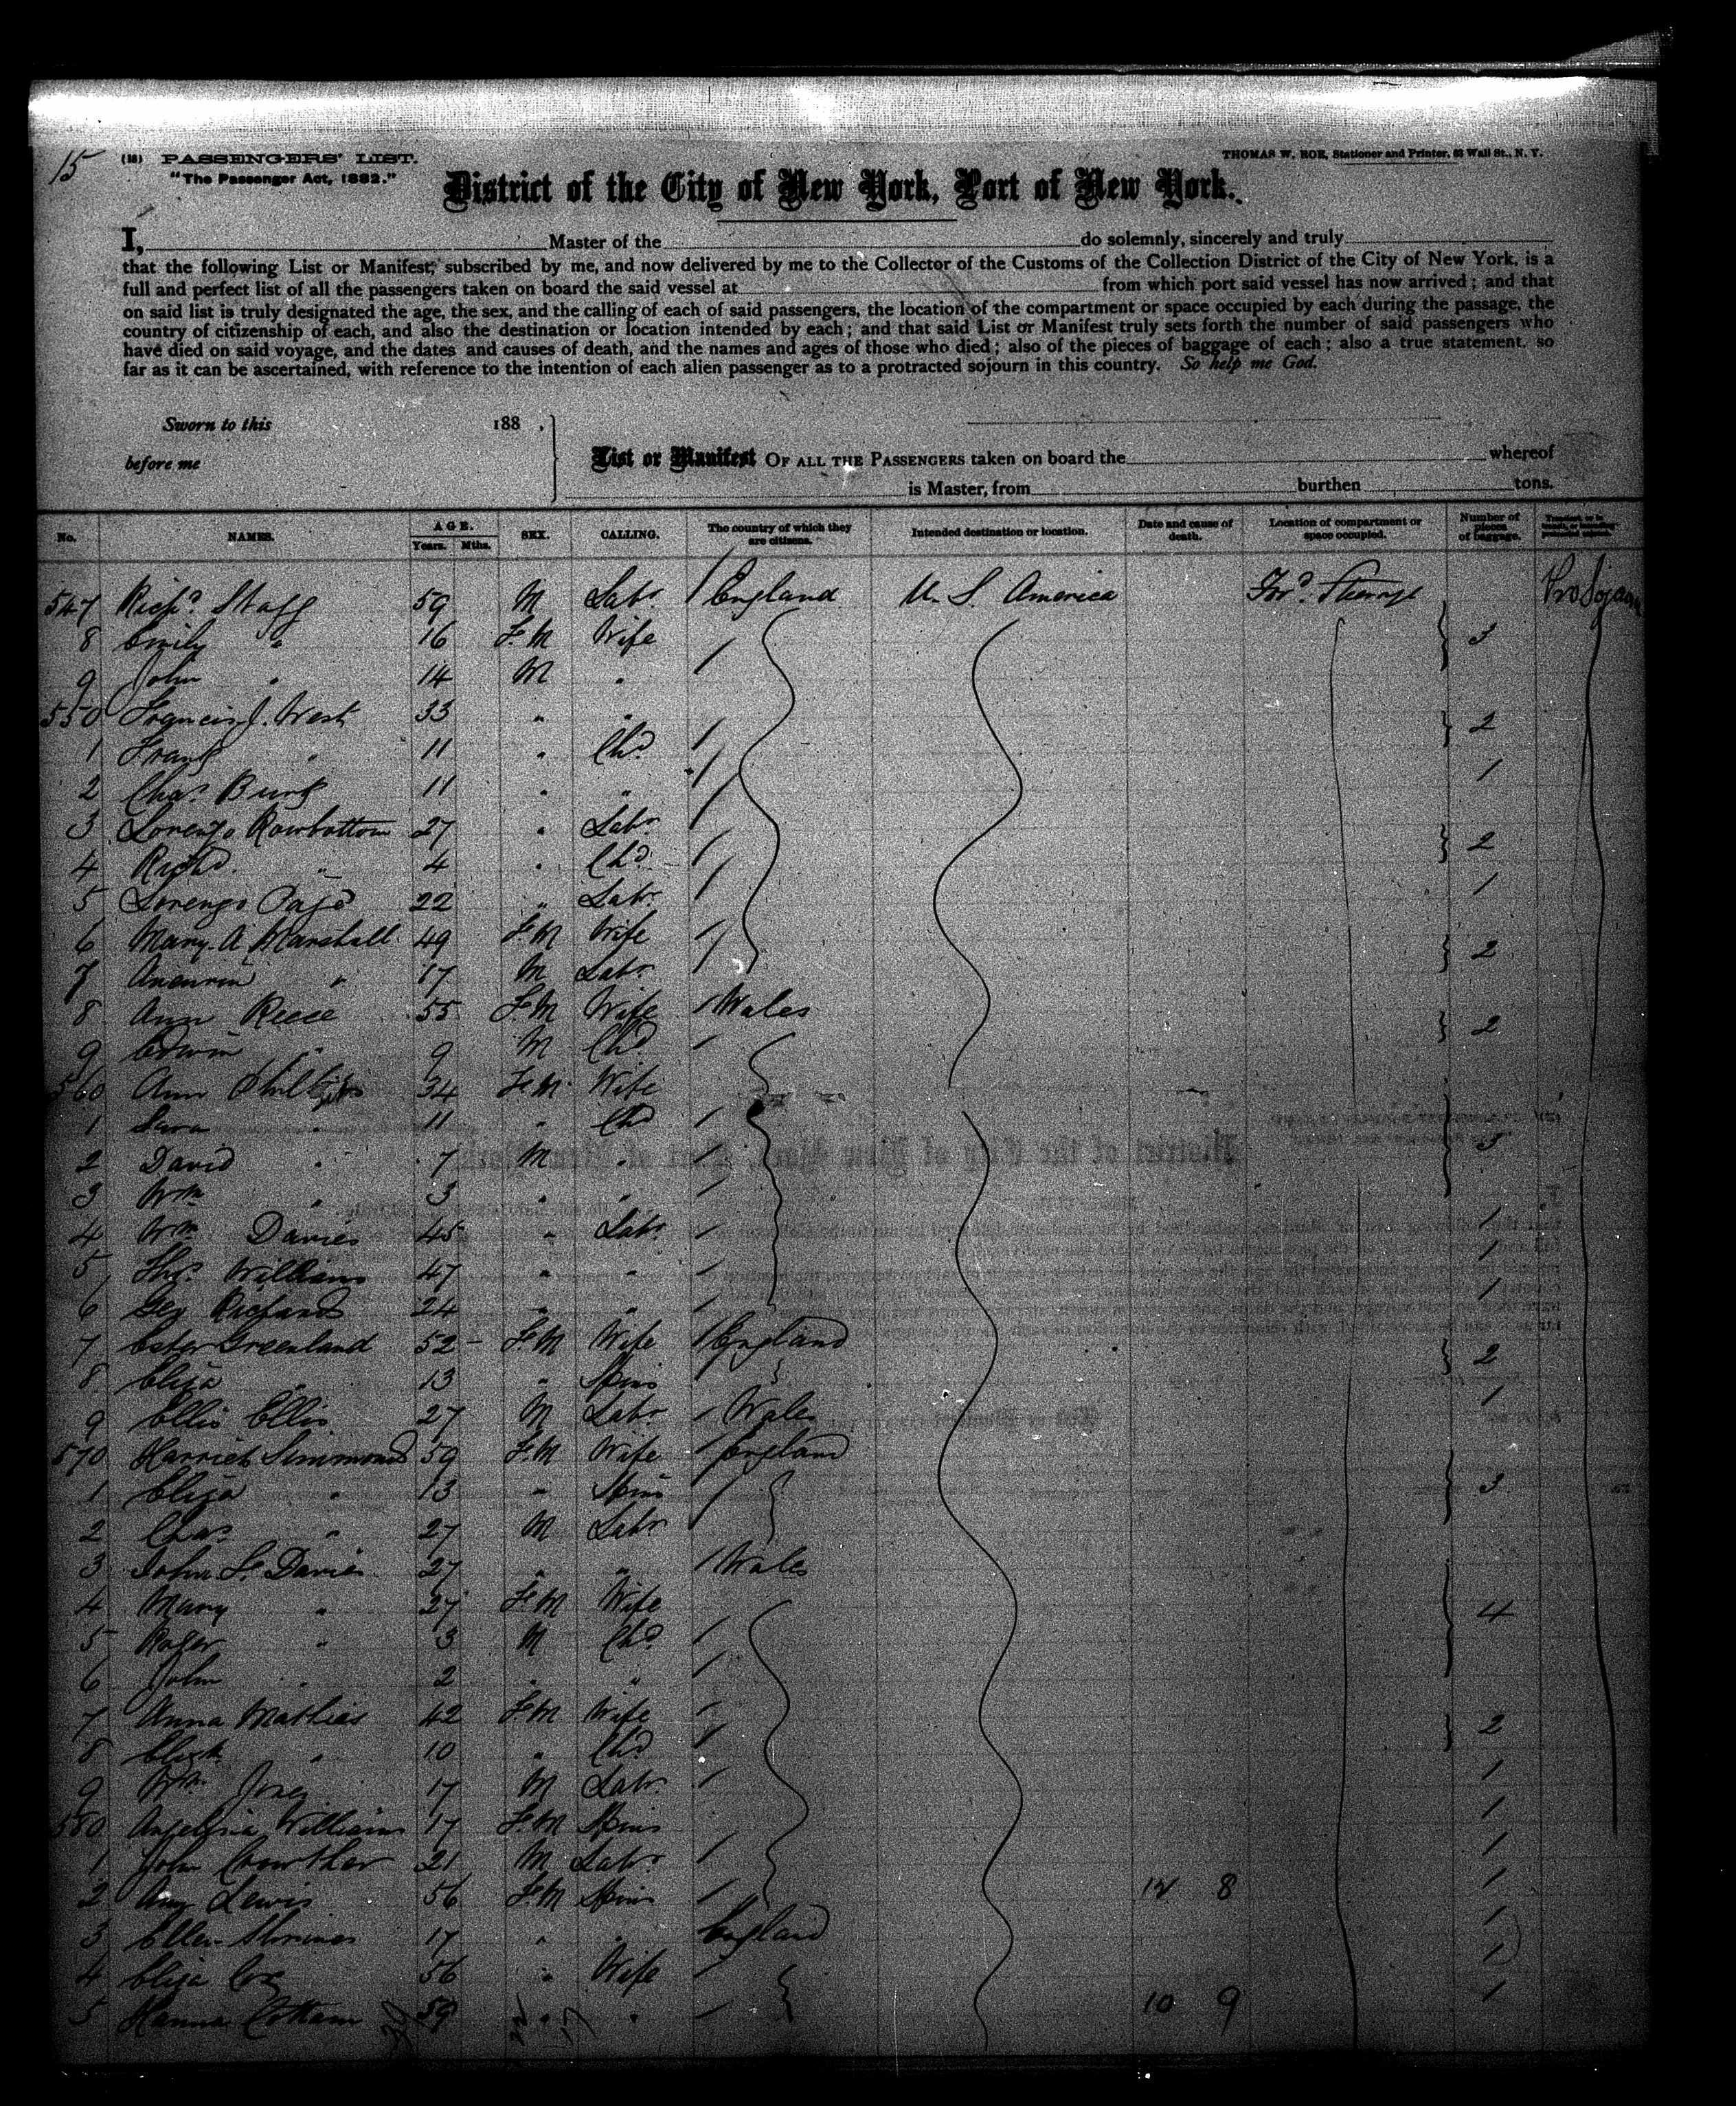 15
(18) PASSENGERS' LIST.
THOMAS W. ROE, Stationer and Printer, 63 Wall St., N. Y.
"The Passenger Act, 1882."
District of the City of New York, Port of New York.
I, Master of the do solemnly, sincerely and truly
that the following List or Manifest, subscribed by me, and now delivered by me to the Collector of the Customs of the Collection District of the City of New York, is a
full and perfect list of all the passengers taken on board the said vessel at from which port said vessel has now arrived; and that
on said list is truly designated the age, the sex, and the calling of each of said passengers, the location of the compartment or space occupied by each during the passage, the
country of citizenship of each, and also the destination or location intended by each; and that said List or Manifest truly sets forth the number of said passengers who
have died on said voyage, and the dates and causes of death, and the names and ages of those who died; also of the pieces of baggage of each; also a true statement, so
far as it can be ascertained, with reference to the intention of each alien passenger as to a protracted sojourn in this country. So help me God.
Sworn to this 188 .
before me
List or Manifest OF ALL THE PASSENGERS taken on board the whereof
is Master, from burthen tons.
No. NAMES. AGE. Years. Mths. SEX. CALLING. The country of which they are citizens. Intended destination or location. Date and cause of death. Location of compartment or space occupied. Number of pieces of baggage.
547 Richd. Stagg 59 M Labr. England U. S. America Ford. Steerage
8 Emily " 16 F.M Wife 3
9 John " 14 M "
550 Francis J. West 33 " " 2
1 Frank " 11 " Chd
2 Chas. Burk 11 " " 1
3 Lorenzo Rowbottom 27 " Labr. 2
4 Richd. " 4 " Chd
5 Lorenzo Page 22 " Labr. 1
6 Mary. A. Marshall 49 F.M Wife 2
7 Aneurin " 17 M Labr.
8 Ann Reece 55 F.M Wife Wales 2
9 Edwin " 9 M Chd
560 Ann Phillips 34 F.M Wife
1 Sara " 11 " Chd 5
2 David " 7 M "
3 Wm " 3 " "
4 Wm. Davies 45 " Labr. 1
5 Thos. Williams 47 " " 1
6 Geo Richards 24 " " 1
7 Ester Greenland 52 F.M Wife England 2
8 Eliza " 13 " Spins
9 Ellis Ellis 27 M Labr Wales 1
570 Harriet Simmonds 59 F.M Wife England
1 Eliza " 13 " Spins 3
2 Chas. " 27 M Labr
3 John L. Davies 27 " " Wales
4 Mary " 27 F.M Wife 4
5 Roger " 3 M Chd
6 John " 2 " "
7 Anna Mathias 42 F.M Wife 2
8 " 10 " Chd
9 Wm. 17 M Labr. 1
580 Angelina Williams 17 F.M Spins 1
1 John Crowther 21 M Labr. 1
2 Lewis 56 F.M Spins 12 8 1
3 Ellen 17 " " England 1
4 Eliza Cox 56 " Wife 1
5 Hanna Cottam 59 " " 10 9 1